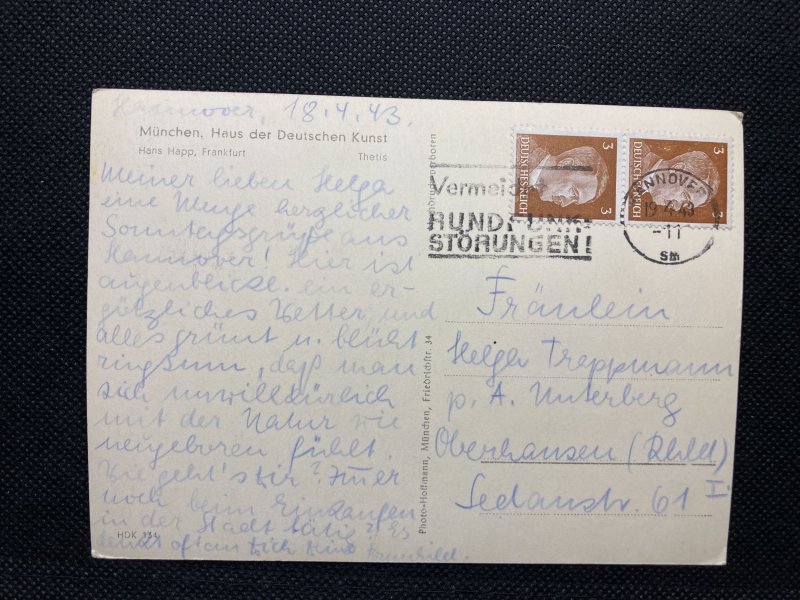 Hannover, 18.4.43.
München, Haus der Deutschen Kunst
Hans Happ, Frankfurt Thetis
Meiner lieben Helga
eine Menge herzlicher
Sonntagsgrüße aus
Hannover! Hier ist
augenblickl. ein er-
götzliches Wetter, und
alles grünt u. blüht
ringsum, daß man
sich unwillkürlich
mit der Natur wie
neugeboren fühlt.
Wie geht's Dir? Immer
noch beim Einkaufen
in der Stadt tätig? Es
denkt oft an Dich Deine Brunhild.
HDK 134
Photo-Hoffmann, München, Friedrichstr. 34
DEUTSCHES REICH 3
DEUTSCHES REICH 3
Vermeidet
RUNDFUNK-
STÖRUNGEN!
HANNOVER
19.4.43
-11
Fräulein
Helga Treppmann
p. A. Unterberg
Oberhausen (Rhld)
Sedanstr. 61 I.